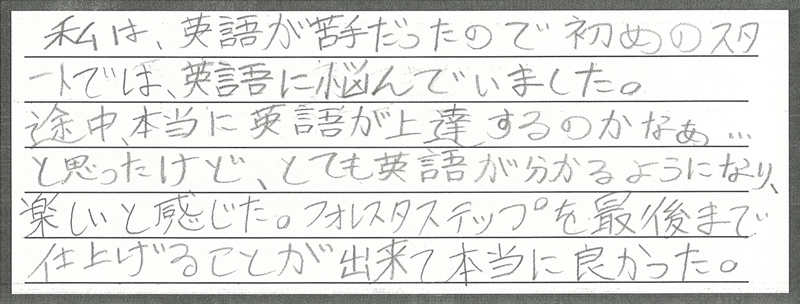 私は、英語が苦手だったので初めのスタ
ートでは、英語に悩んでいました。
途中、本当に英語が上達するのかなぁ…
と思ったけど、とても英語が分かるようになり、
楽しいと感じた。フォレスタステップを最後まで
仕上げることが出来て本当に良かった。